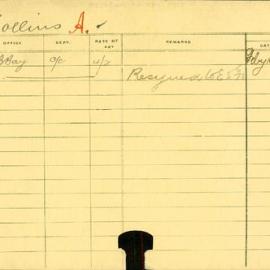 ollins A.
OFFICE DEPT. RATE OF PAY REMARKS DAT
Bay O/c 4/2
Resigned